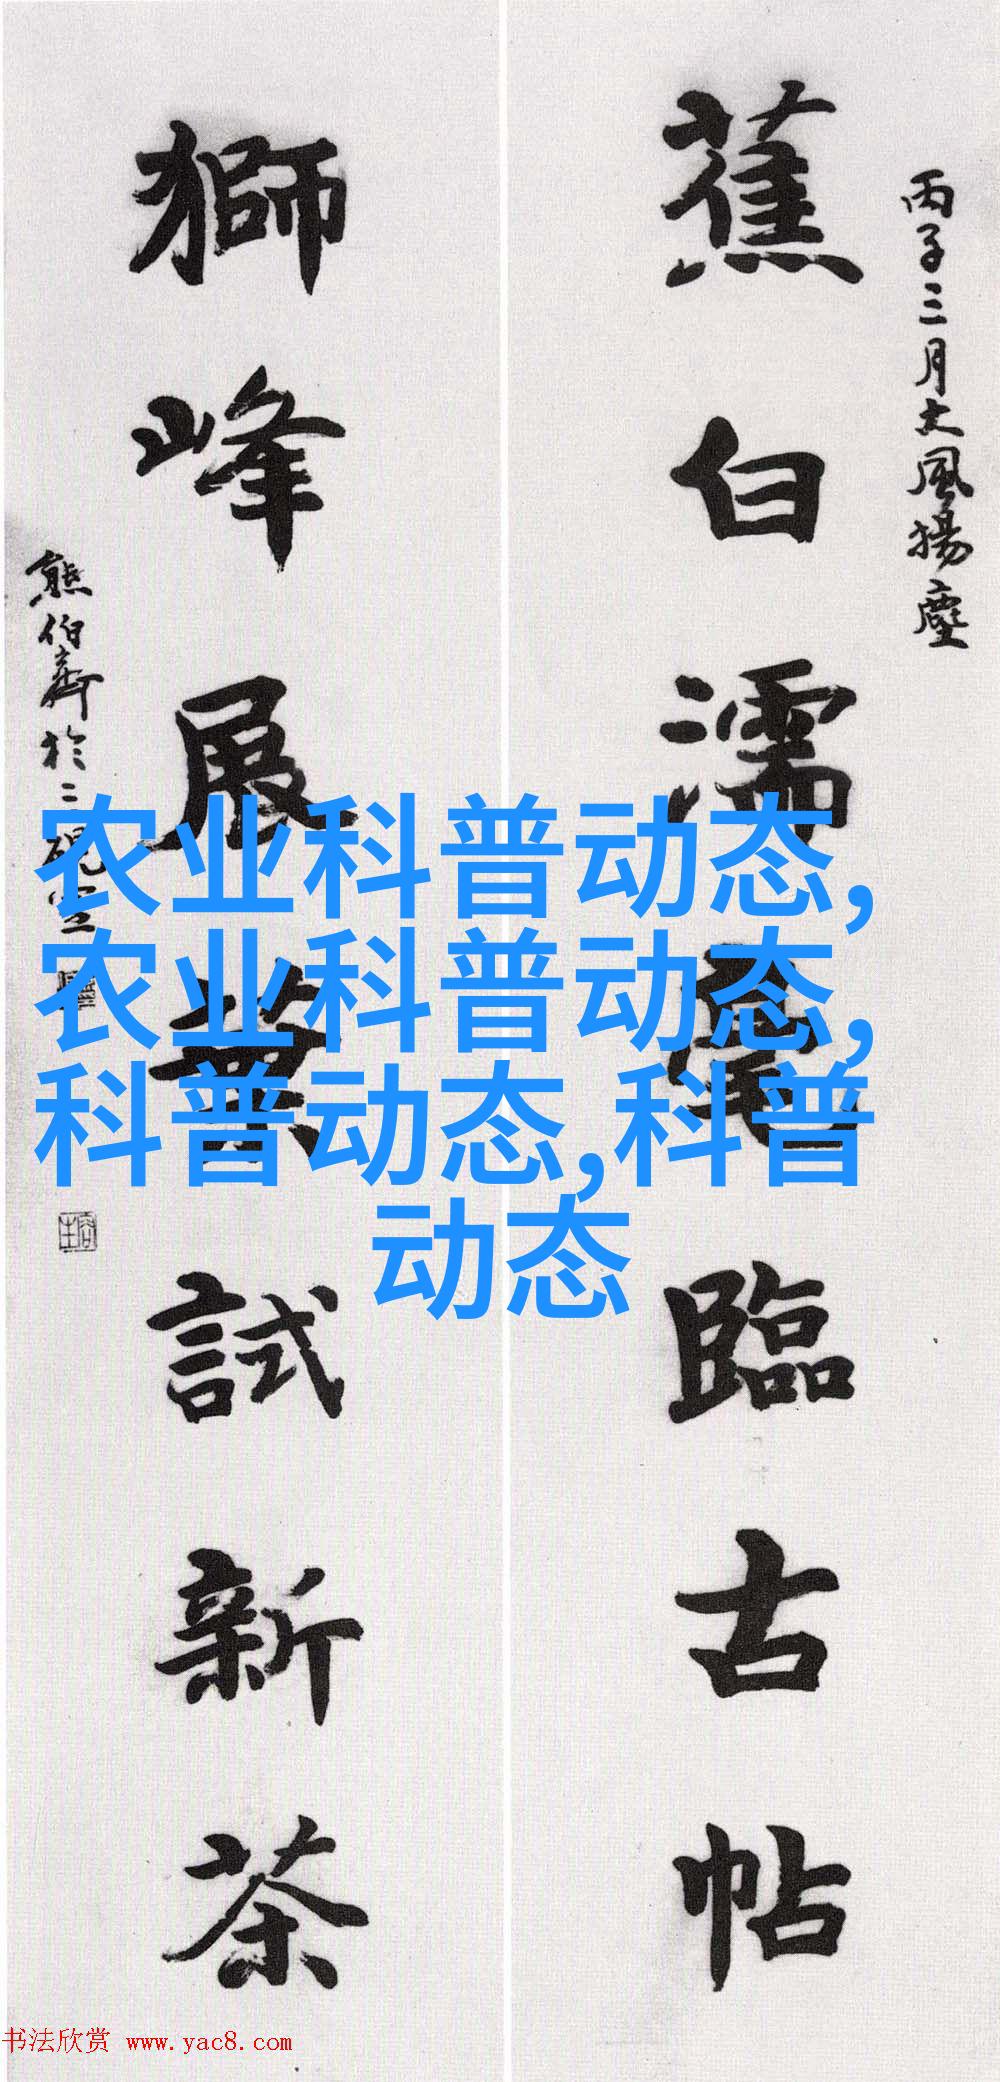 丙子三月大風揚塵
蕉白濡毫臨古帖
獅峰展葉試新茶
熊伯齊於二硯室
农业科普动态,
农业科普动态,
科普动态,科普
动态
书法欣赏 www.yac8.com